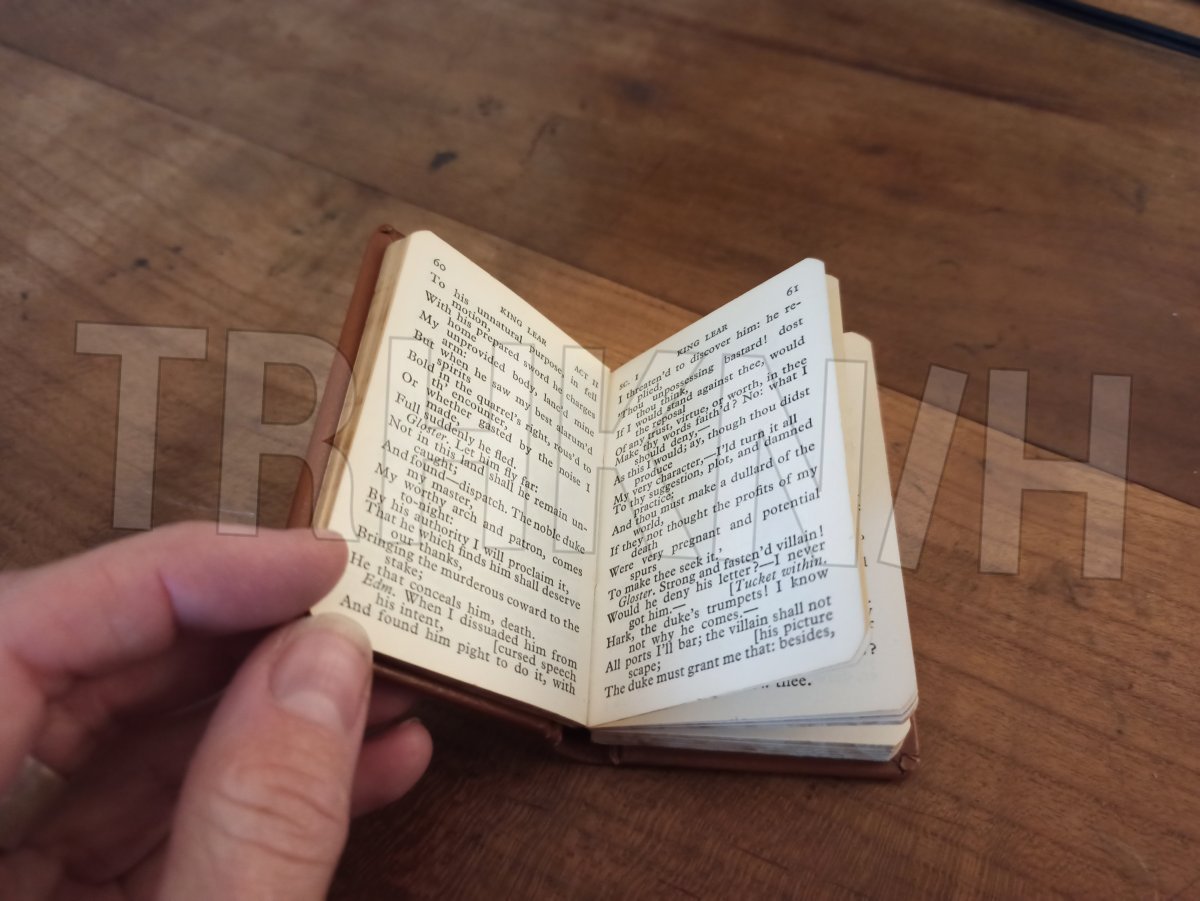 60 KING LEAR ACT II
To his unnatural purpose, in fell
motion,
With his prepared sword he charges
home
My unprovided body, lanc'd mine
arm:
But when he saw my best alarum'd
spirits
Bold in the quarrel's right, rous'd to
th' encounter,
Or whether gasted by the noise I
made,
Full suddenly he fled.
Gloster. Let him fly far:
Not in this land shall he remain un-
caught;
And found—dispatch. The noble duke
my master,
My worthy arch and patron, comes
to-night:
By his authority I will proclaim it,
That he which finds him shall deserve
our thanks,
Bringing the murderous coward to the
stake;
He that conceals him, death.
Edm. When I dissuaded him from
his intent, [cursed speech
And found him pight to do it, with
SC. I KING LEAR 61
I threaten'd to discover him: he re-
plied,
'Thou unpossessing bastard! dost
thou think,
If I would stand against thee, would
the reposal
Of any trust, virtue, or worth, in thee
Make thy words faith'd? No: what I
should deny,—
As this I would; ay, though thou didst
produce
My very character,—I'ld turn it all
To thy suggestion, plot, and damned
practice:
And thou must make a dullard of the
world,
If they not thought the profits of my
death
Were very pregnant and potential
spurs
To make thee seek it.'
Gloster. Strong and fasten'd villain!
Would he deny his letter?—I never
got him.— [Tucket within.
Hark, the duke's trumpets! I know
not why he comes.—
All ports I'll bar; the villain shall not
scape; [his picture
The duke must grant me that: besides,
?
thee.